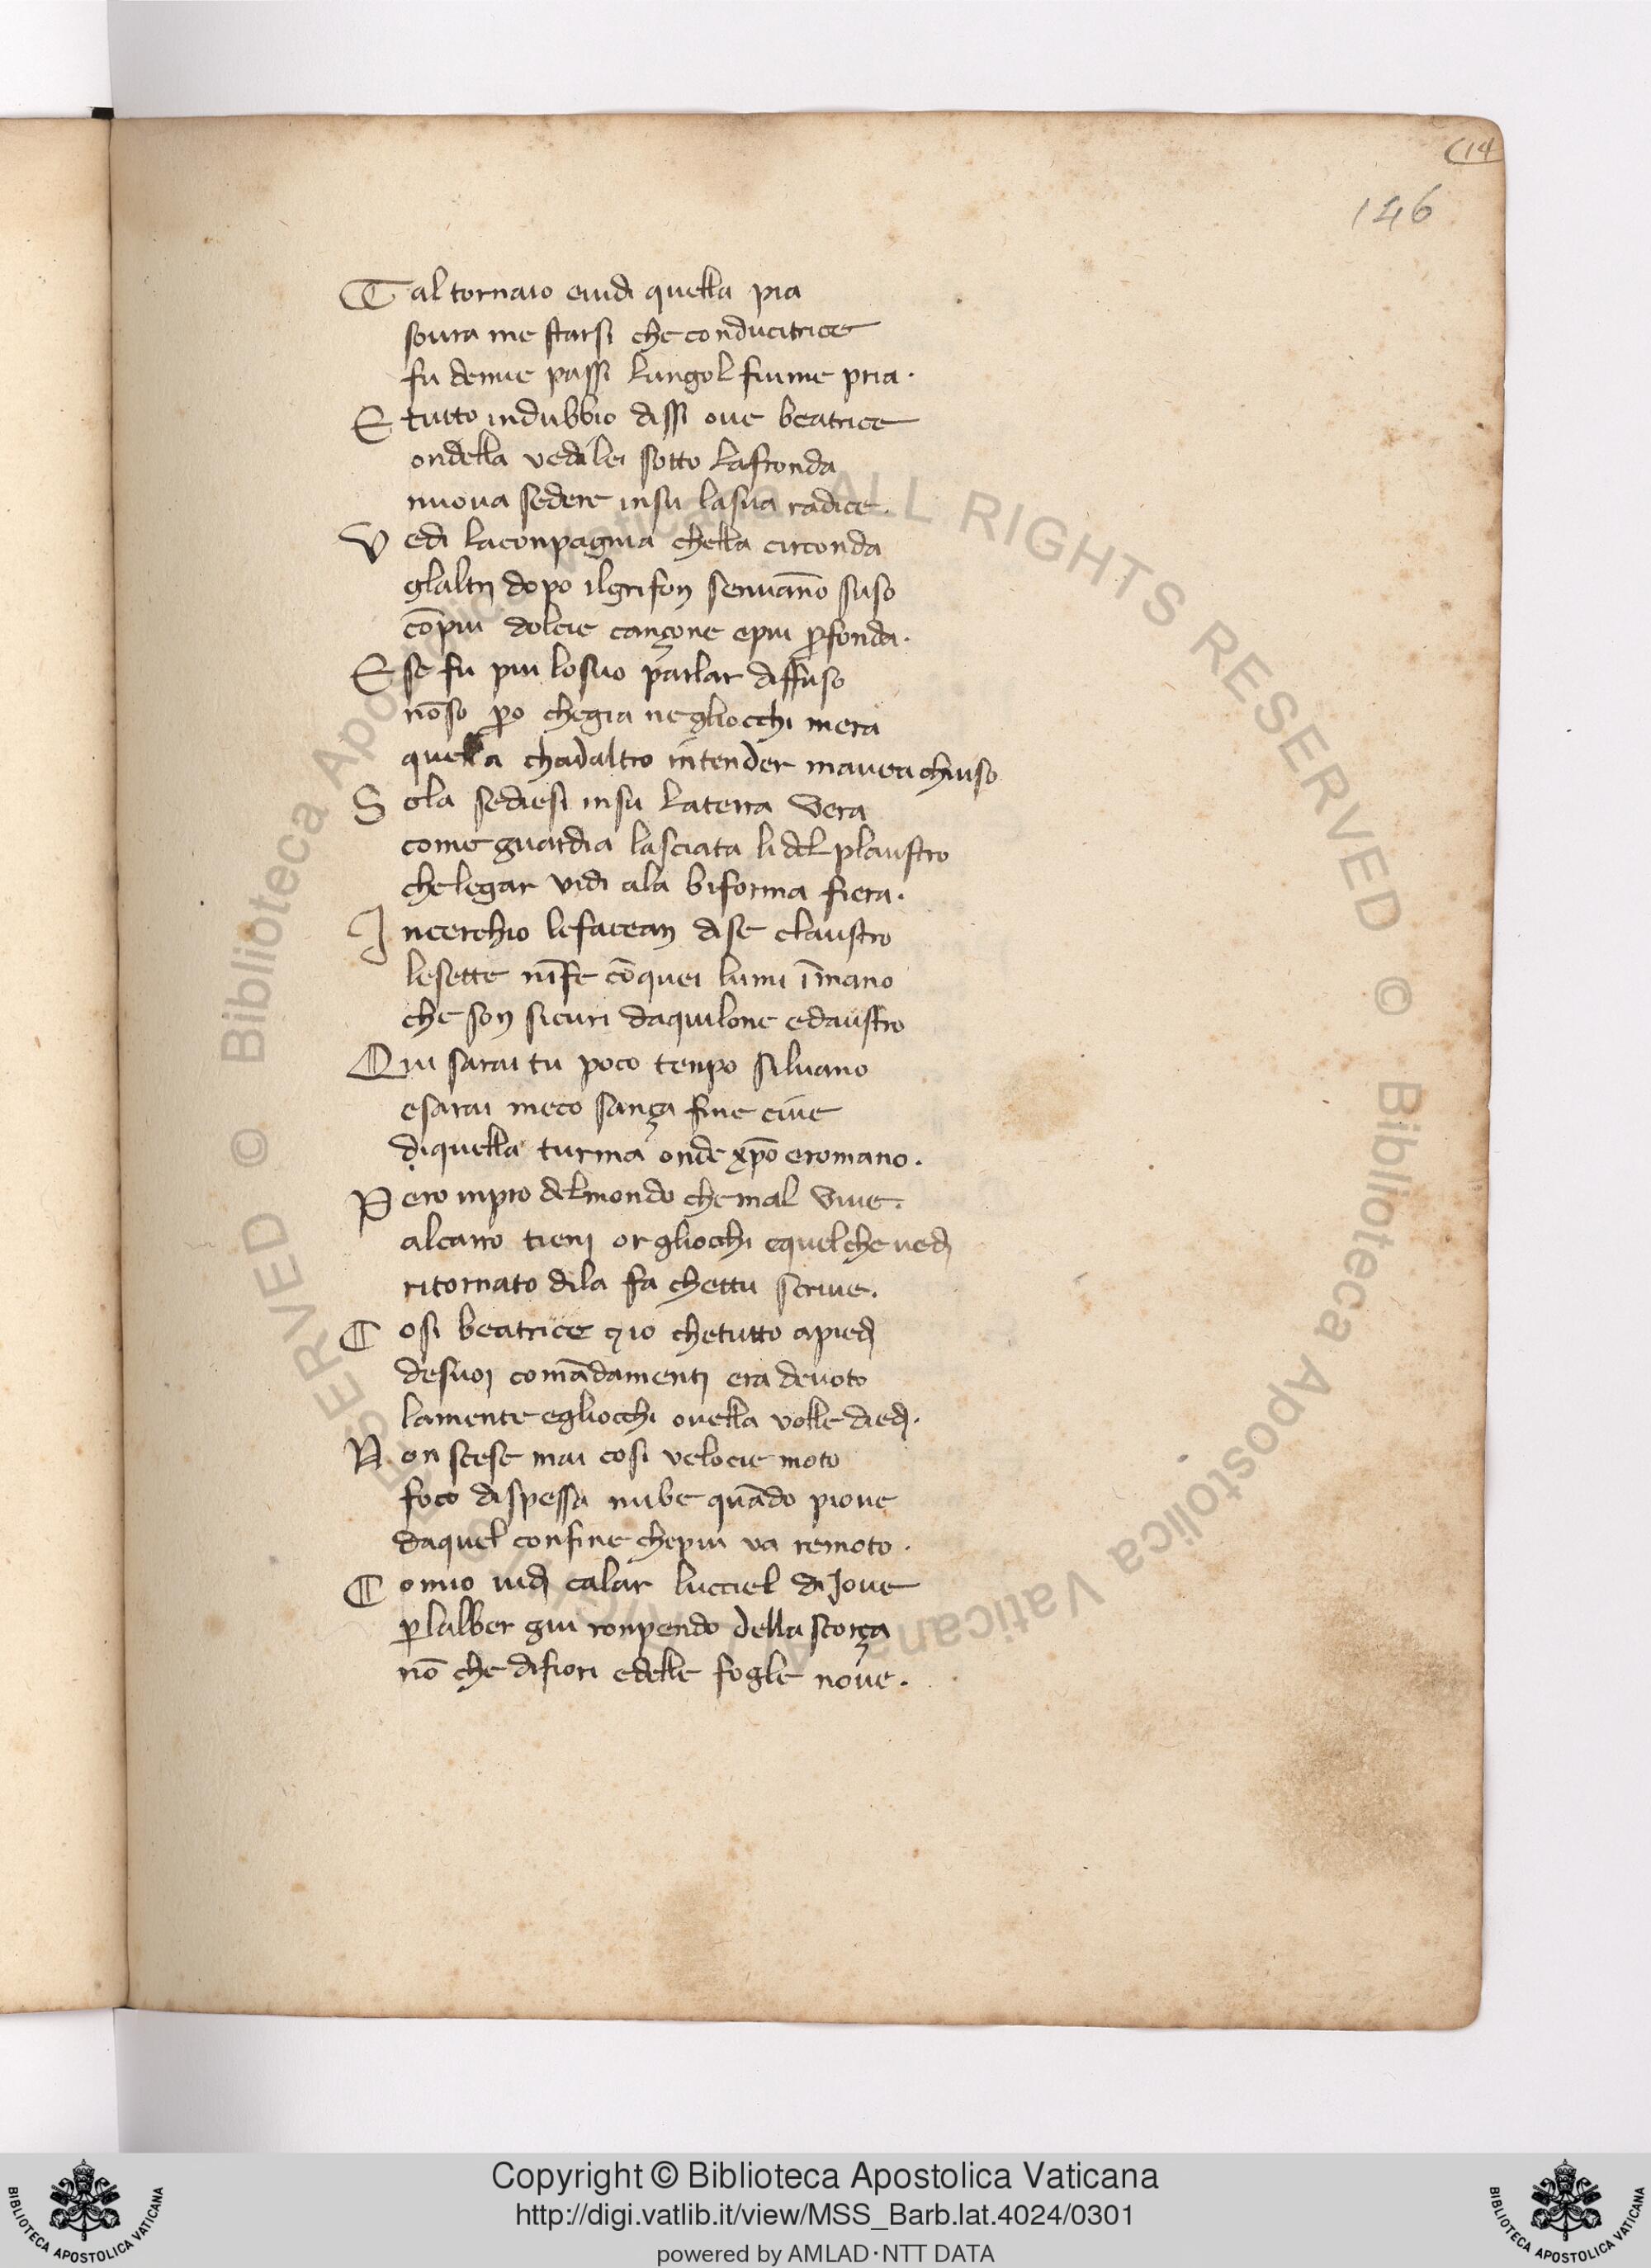 (14
146
Tal tornaio euidi quella pia
soura me starsi che conducitrice
fu demie passi lungol fiume pria.
E tutto indubbio dissi oue beatrice
ondella vedi lei sotto lafronda
nuoua sedere insu lasua radice.
Vedi laconpagnia chella circonda
glaltri dopo ilgrifon senuan̄o suso
cōpiu dolcie cançone epiu ꝓfonda.
E se fu piu losuo parlar diffuso
nōso ꝑo chegia negliocchi mera
quella chadaltro intender mauea chiuso
Sola sediesi insu laterra vera
come guardia lasciata li del plaustro
chelegar vidi ala biforma fiera.
Incerchio lefacean dise claustro
lesette nīfe cōquei lumi īmano
che son sicuri daquilone edaustro
Qui sarai tu poco tenpo siluano
esarai meco sança fine ciue
diquella turma onde xp̄o eromano.
Pero inpro delmondo chemal viue.
alcarro tieni or gliocchi equelche uedi
ritornato dila fa chettu scriue.
Cosi beatrice ⁊io chetutto apiedi
desuoi comādamenti era deuoto
lamente egliocchi ouella volle diedi.
Non scese mai cosi velocie moto
foco dispessa nube quādo pioue
daquel confine chepiu va remoto.
Comio uidi calar lucciel di Joue
ꝑlalber giu ronpendo della scorça
nō che difiori edelle fogle noue.
© Biblioteca Apostolica Vaticana ALL RIGHTS RESERVED © Biblioteca Apostolica Vaticana ALL RIGHTS RESERVED
Copyright © Biblioteca Apostolica Vaticana
http://digi.vatlib.it/view/MSS_Barb.lat.4024/0301
powered by AMLAD·NTT DATA
BIBLIOTECA APOSTOLICA VATICANA
BIBLIOTECA APOSTOLICA VATICANA